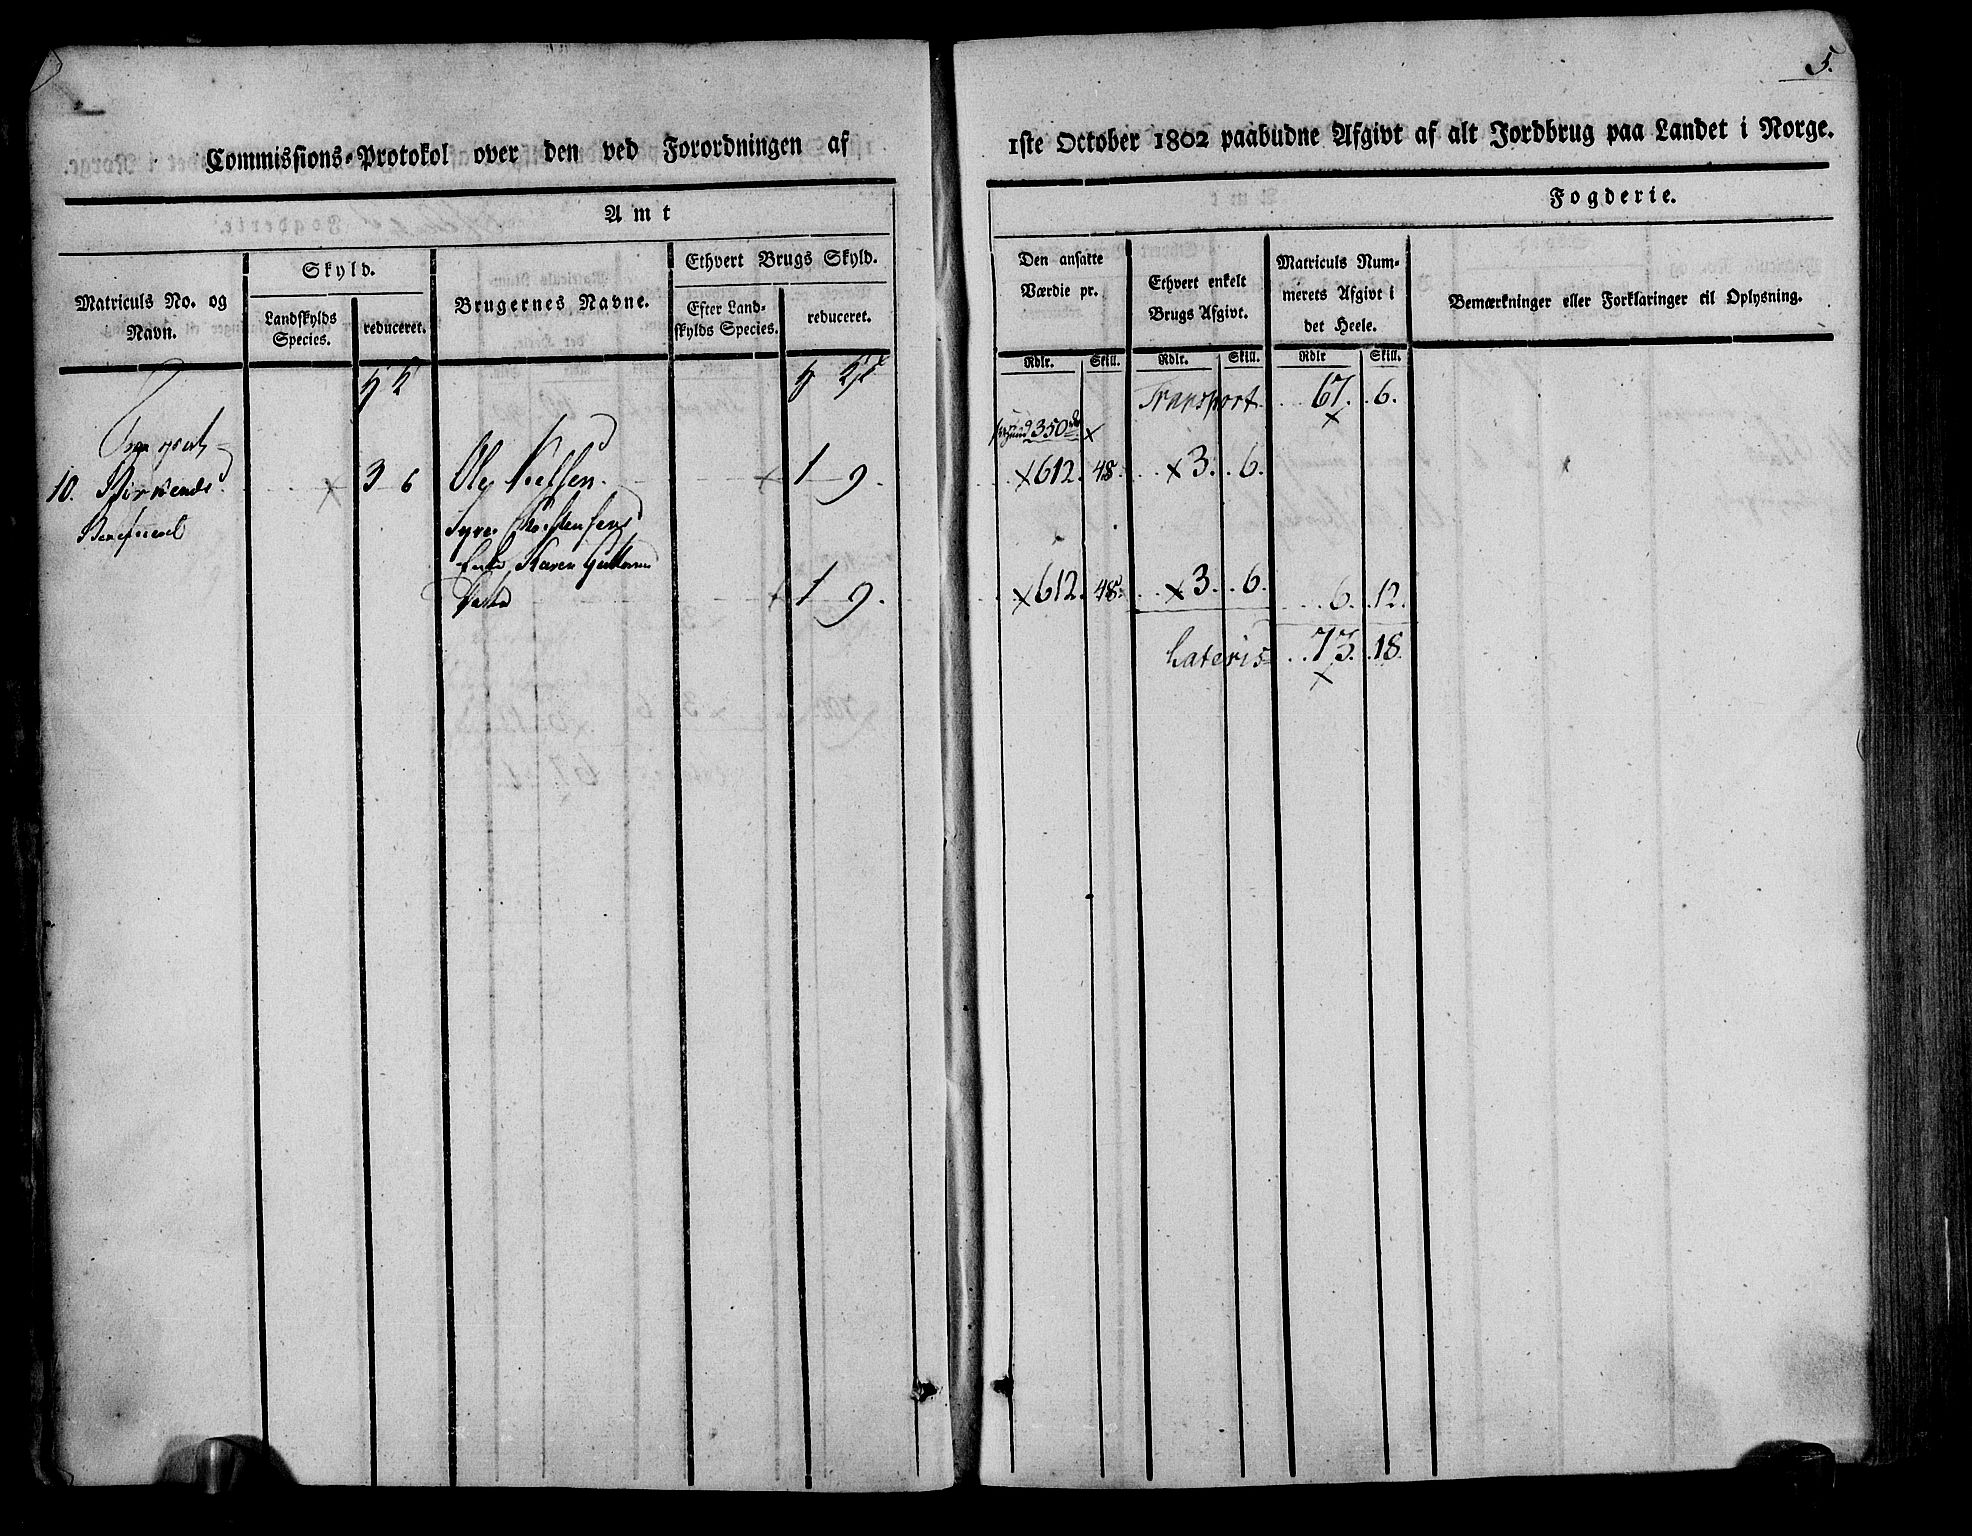 5.
Commissions-Protokol over den ved Forordningen af
1ste October 1802 paabudne Afgivt af alt Jordbrug paa Landet i Norge.
Amt
Fogderie.
Matriculs No. og Navn.
Skyld.
Landskylds Species.
reduceret.
Brugernes Navne.
Ethvert Brugs Skyld.
Efter Landskylds Species.
reduceret.
Den ansatte Værdie pr.
Ethvert enkelt Brugs Afgivt.
Matriculs Nummerets Afgivt i det Heele.
Bemærkninger eller Forklaringer til Oplysning.
Rdlr. Skill. Rdlr. Skill. Rdlr Skill.
Transport 67. 6.
Transport
10. 3 6 Ole 1 9. 612. 48. 3. 6.
Beneficeret
Karen
1 9. 612. 48. 3. 6. 6. 12.
Lateris 73. 18.